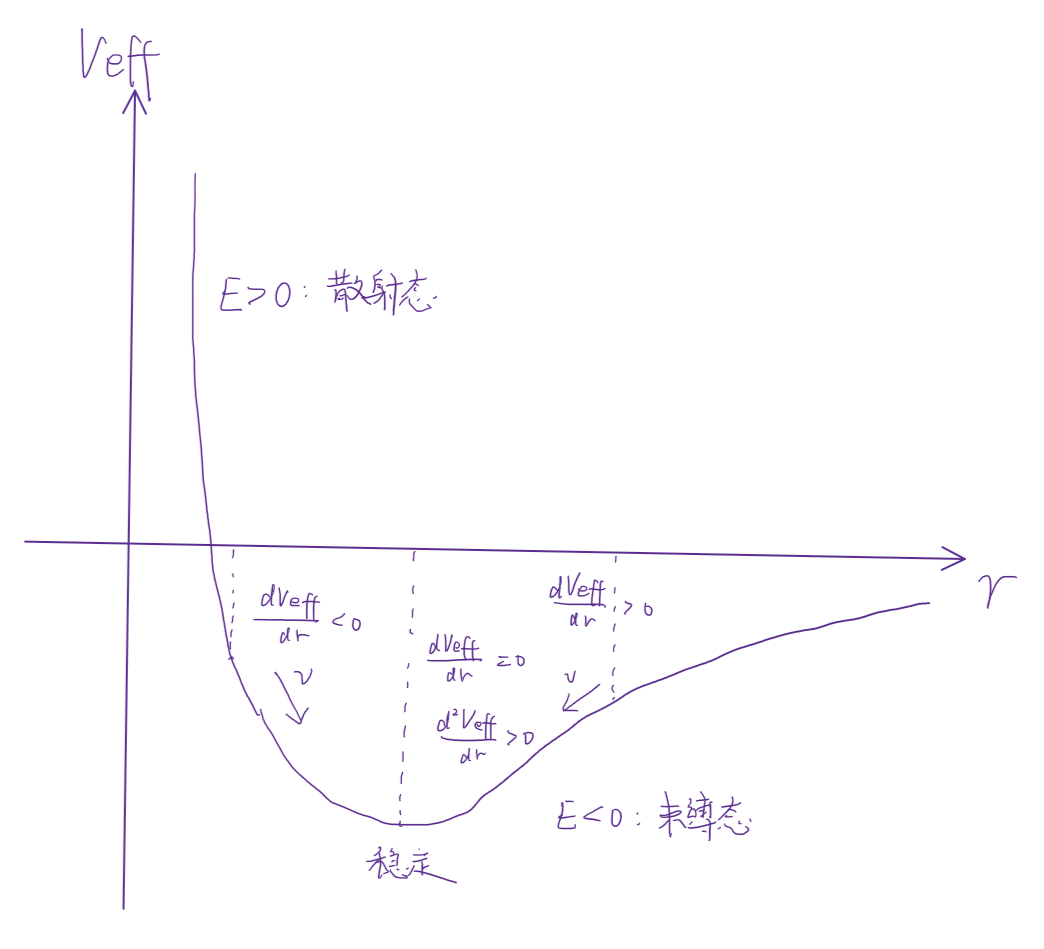 Veff
E>0: 散射态
r
dVeff/dr <0
v
dVeff/dr =0
d²Veff/dr >0
dVeff/dr >0
v
E<0: 束缚态
稳定